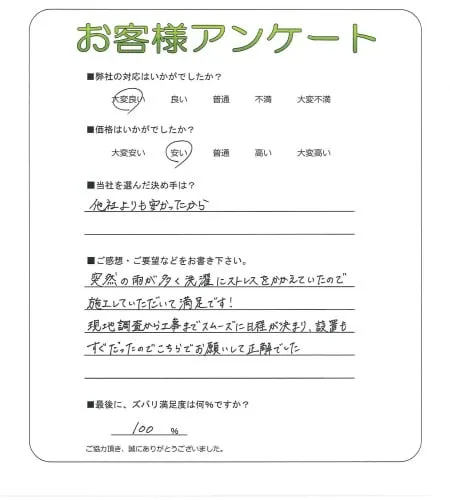 お客様アンケート
■弊社の対応はいかがでしたか？
大変良い　良い　普通　不満　大変不満
■価格はいかがでしたか？
大変安い　安い　普通　高い　大変高い
■当社を選んだ決め手は？
他社よりも安かったから
■ご感想・ご要望などをお書き下さい。
突然の雨が多く洗濯にストレスをかかえていたので
施工していただいて満足です!
現地調査から工事までスムーズに日程が決まり、設置も
すぐだったのでこちらでお願いして正解でした
■最後に、ズバリ満足度は何%ですか？
100 %
ご協力頂き、誠にありがとうございました。